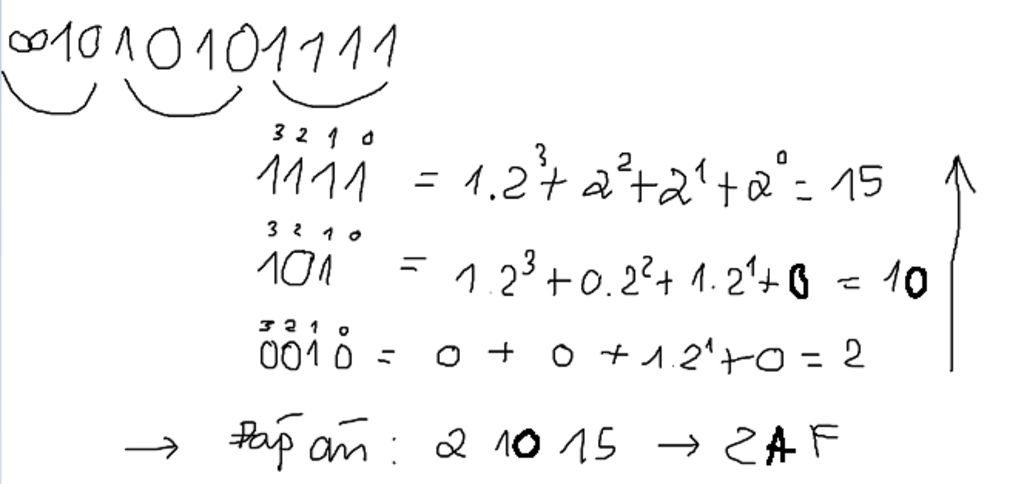 001010101111
3 2 1 0
1111 = 1.2³ + 2² + 2¹ + 2⁰ = 15
3 2 1 0
101 = 1.2³ + 0.2² + 1.2¹ + 0 = 10
3 2 1 0
0010 = 0 + 0 + 1.2¹ + 0 = 2
→ Đáp án: 2 10 15 → 2AF